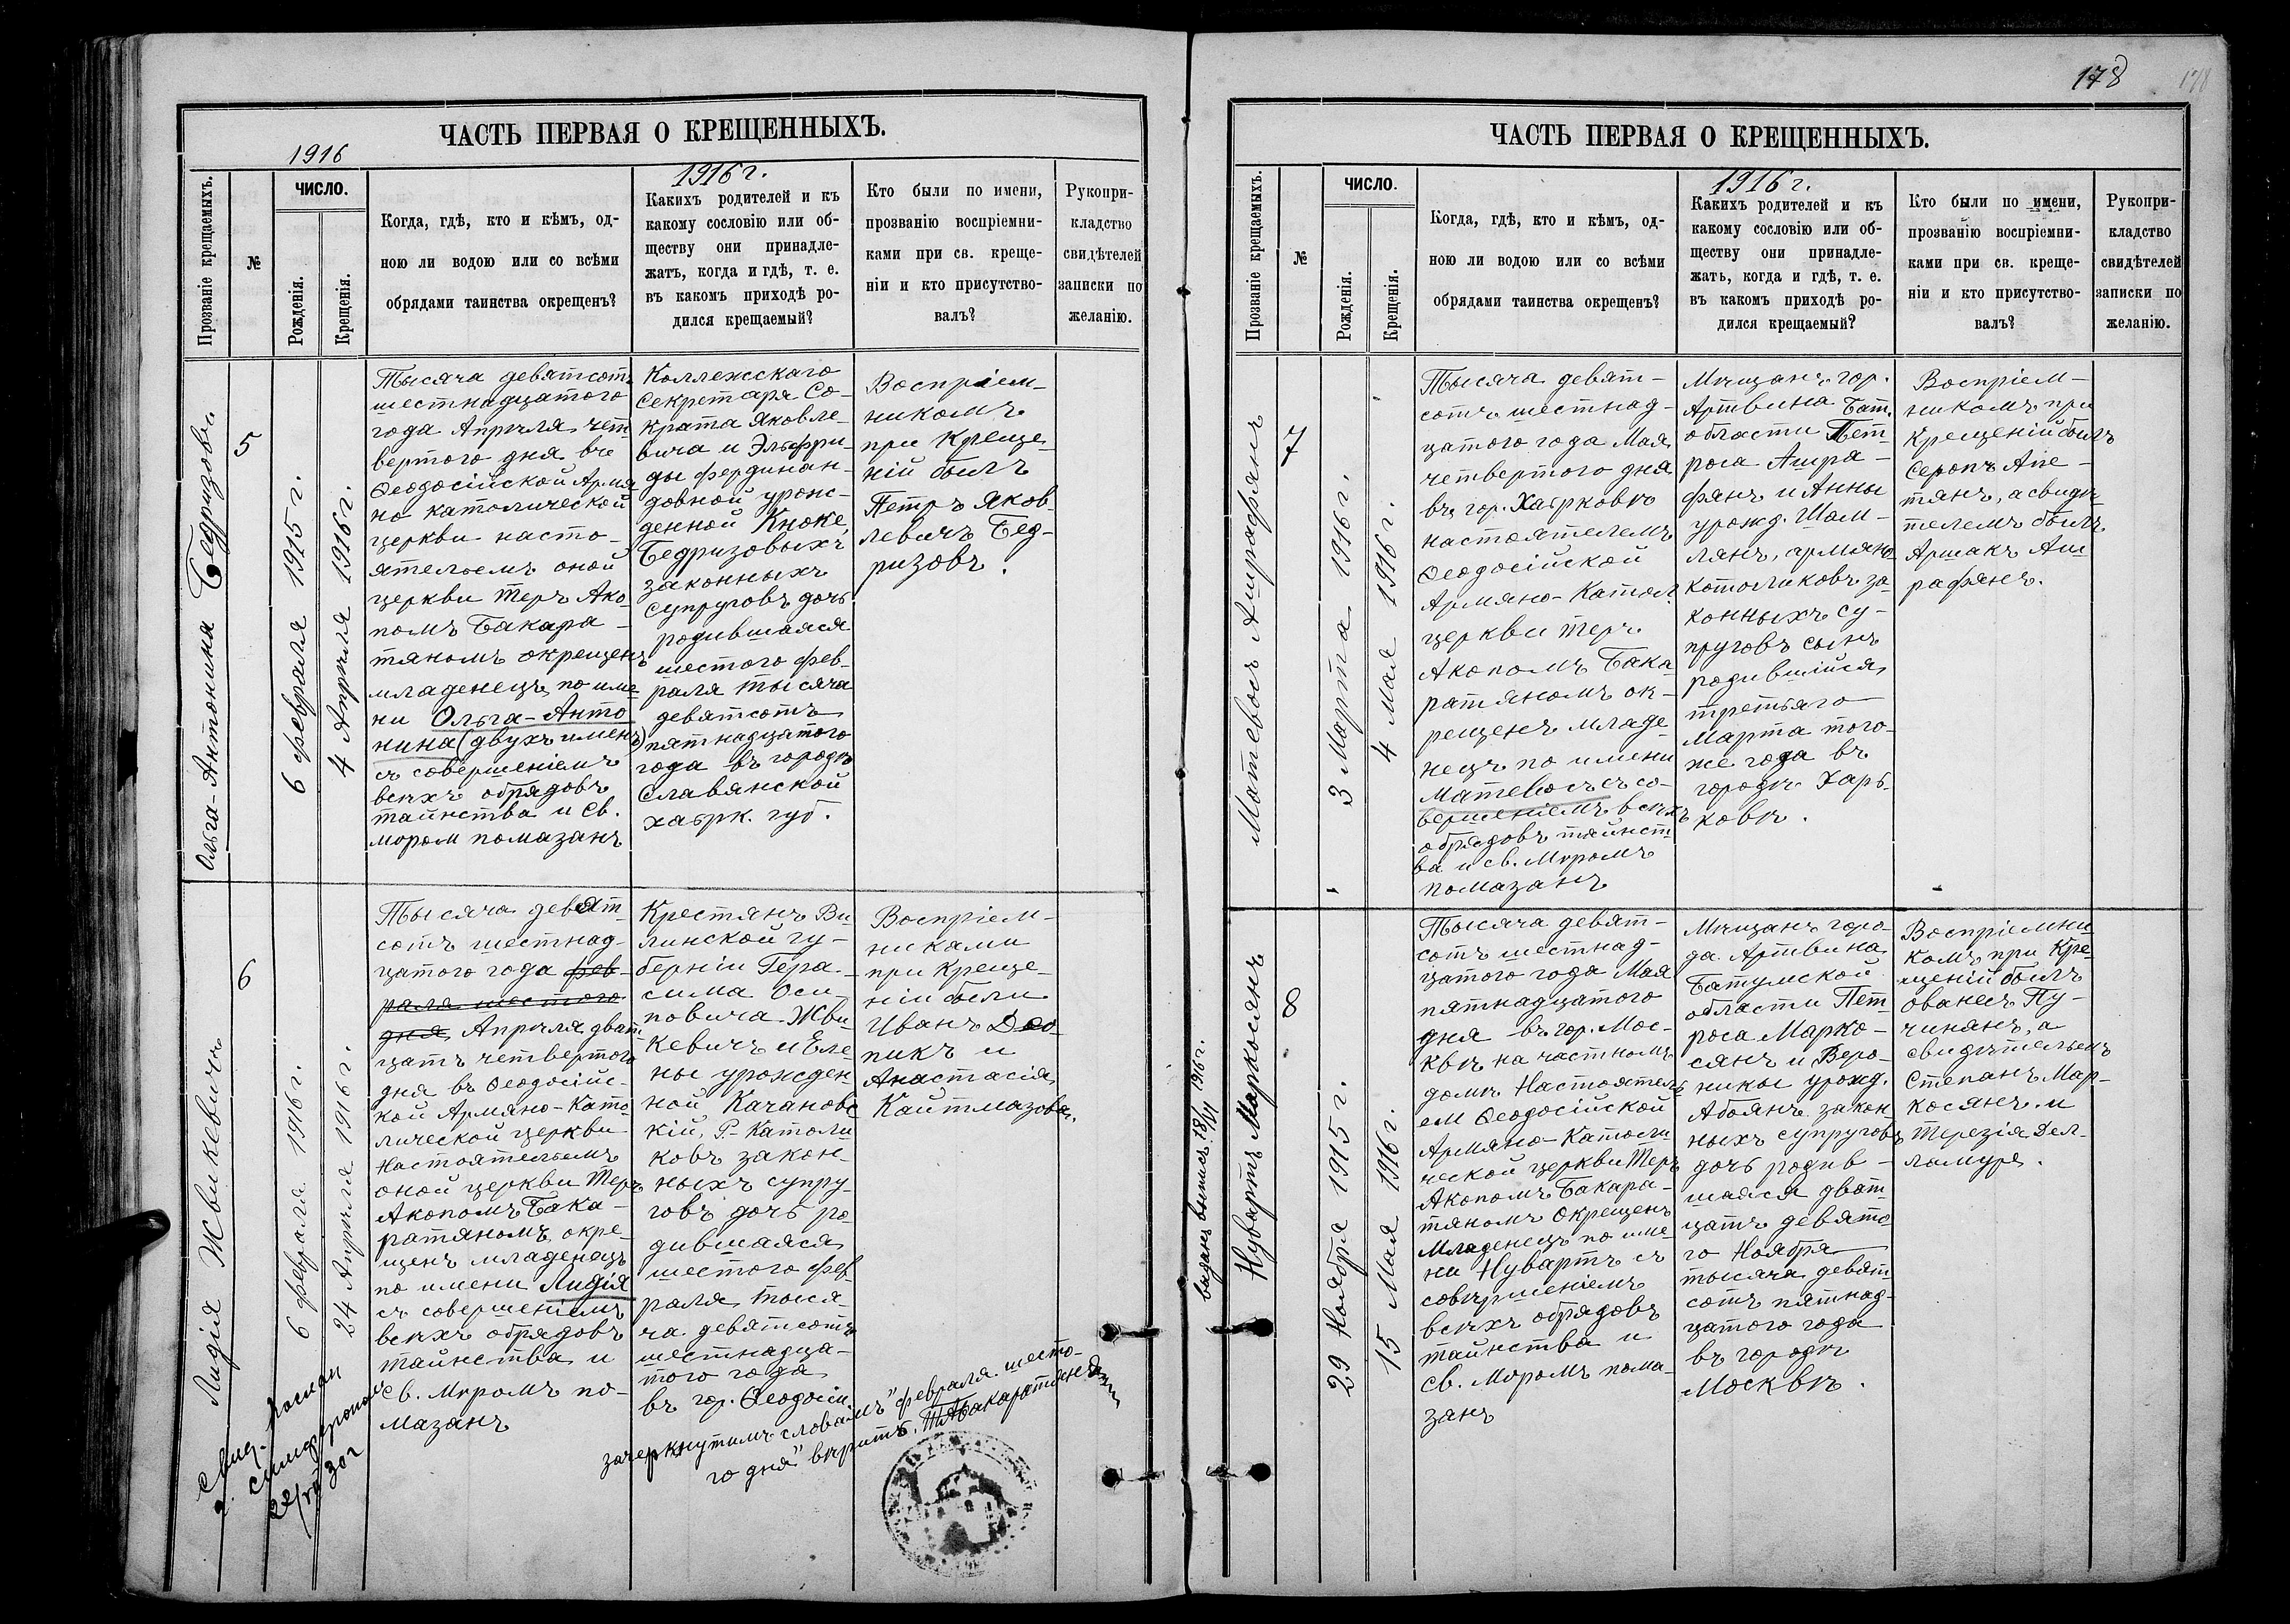 ЧАСТЬ ПЕРВАЯ О КРЕЩЕННЫХЪ.
1916
1916 г.
Прозваніе крещаемыхъ.
№
ЧИСЛО.
Рожденія.
Крещенія.
Когда, гдѣ, кто и кѣмъ, од-
ною ли водою или со всѣми
обрядами таинства окрещенъ?
Какихъ родителей и къ
какому сословію или об-
ществу они принадле-
жатъ, когда и гдѣ, т. е.
въ какомъ приходѣ ро-
дился крещаемый?
Кто были по имени,
прозванію воспріемни-
ками при св. креще-
ніи и кто присутство-
валъ?
Рукопри-
кладство
свидѣтелей
записки по
желанію.
Ольга-Антонина Бедризовъ
5
6 февраля 1915 г.
4 Апрѣля 1916 г.
Тысяча девятсотъ
шестнадцатого
года Апрѣля чет
вертого дня въ
Ѳеодосійской Армя
но католической
церкви насто-
ятельемъ оной
церкви Теръ Ако-
помъ Бакара-
тяномъ окрещенъ
младенецъ по име
ни Ольга-Анто
нина (двухъ именъ)
съ совершеніемъ
всѣхъ обрядовъ
таинства и Св.
мором помазанъ
Коллежскаго
Секретаря Со-
крата Яковле-
вича и Эльфри
ды фердинан-
довной урож-
денной Кноке,
Бедризовыхъ
законныхъ
супруговъ дочь
родившаяся
шестого фев-
раля тысяча
девятсотъ
пятнадцатого
года въ городѣ
Славянской
Харьк. губ.
Воспріем-
никомъ
при Креще
ній былъ
Петръ Яков
левичъ Бед-
ризовъ.
Лидія Жвикевичъ
6
6 февраля 1916 г.
24 Апрѣля 1916 г.
Тысяча девят-
сотъ шестнад-
цатого года фев-
раля шестого
дня Апрѣля двад
цать четвертого
дня въ Ѳеодосійс-
кой Армяно-Като
лической церкви
Настоятельемъ
оной церкви Теръ
Акопомъ Бака-
ратяномъ окре-
щенъ младенецъ
по имени Лидія
съ совершеніемъ
всѣхъ обрядовъ
таинства и
св. Мѵромъ по-
мазанъ
Крестянъ Ви
линской гу-
берніи Гера-
сима Оси-
повича Жви-
кевичъ и Еле
ны урожден-
ной Качановс
кій, Р.-Католи
ковъ закон-
ныхъ супру-
говъ дочь ро
дившаяся
шестого фев
раля тыся-
ча девятсотъ
шестнадца-
того года
въ гор. Ѳеодосіи.
Воспріем-
никами
при Креще-
ніи были
Иванъ
пикъ и
Анастасія
Кайтмазова.
зачеркнутымъ словамъ „февраля шесто-
го дня" вѣрить.
22/VI 30 г
ЧАСТЬ ПЕРВАЯ О КРЕЩЕННЫХЪ.
178
178
1916 г.
Прозваніе крещаемыхъ.
№
ЧИСЛО.
Рожденія.
Крещенія.
Когда, гдѣ, кто и кѣмъ, од-
ною ли водою или со всѣми
обрядами таинства окрещенъ?
Какихъ родителей и къ
какому сословію или об-
ществу они принадле-
жатъ, когда и гдѣ, т. е.
въ какомъ приходѣ ро-
дился крещаемый?
Кто были по имени,
прозванію воспріемни-
ками при св. креще-
ніи и кто присутство-
валъ?
Рукопри-
кладство
свидѣтелей
записки по
желанію.
Матевосъ Ашрафянъ
7
3 Марта 1916 г.
4 Мая 1916 г.
Тысяча девят-
сотъ шестнад-
цатого года Мая
четвертого дня
въ гор. Харьковѣ
настоятелемъ
Ѳеодосійской
Армяно-Катол.
церкви теръ
Акопомъ Бака
ратяномъ ок-
рещенъ младе
нецъ по имени
Матевосъ съ со-
вершеніемъ всѣхъ
обрядовъ таинст
ва и св. Мѵромъ
помазанъ
Мѣщанъ гор.
Артвина Бат.
области Пет
роса Ашра-
фянъ и Анны
урожд. Шам-
лянъ, армяно
католиковъ за
конныхъ су-
пруговъ сынъ
родившійся
третьяго
Марта того-
же года въ
городѣ Харь-
ковѣ.
Воспріем-
никомъ при
Крещеній былъ
Серопъ Апе-
тянъ, а свидѣ
телемъ былъ
Аршакъ Аш
рафянъ.
Нувартъ Маркосянъ
8
29 Ноября 1915 г.
15 Мая 1916 г.
Тысяча девят-
сотъ шестнад-
цатого года Мая
пятнадцатого
дня въ гор. Мос-
квѣ на частномъ
домѣ Настоятель
ем Ѳеодосійской
Армяно-Католи
ческой церкви Теръ
Акопомъ Бакара-
тяномъ Окрещенъ
Младенецъ по име-
ни Нувартъ съ
совершеніемъ
всѣхъ обрядовъ
таинства и
св. Мѵромъ пома-
занъ
Мѣщанъ горо-
да Артвина
Батумской
области Пет
роса Марко-
сянъ и Веро-
ники урожд.
Абоянъ закон
ныхъ супруговъ
дочь родив-
шаяся двад
цать девято
го Ноября
тысяча девят
сотъ пятнад-
цатого года
въ городѣ
Москвѣ.
Воспріемни
комъ при Кре-
щеній былъ
ованесъ Пу-
чинянъ, а
свидѣтельемъ
Степанъ Мар-
косянъ и
Терезія Дел-
ламуре.